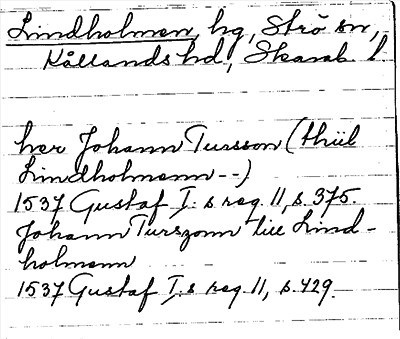 Lindholmen, hg, Strö sn,
Kållands hd, Skarab. l.
her Johann Tursson (thiil
Lindholmenn --)
1537 Gustaf I:s reg. 11, s. 375.
Johann Turszonn till Lind-
holmenn
1537 Gustaf I:s reg. 11, s. 429.